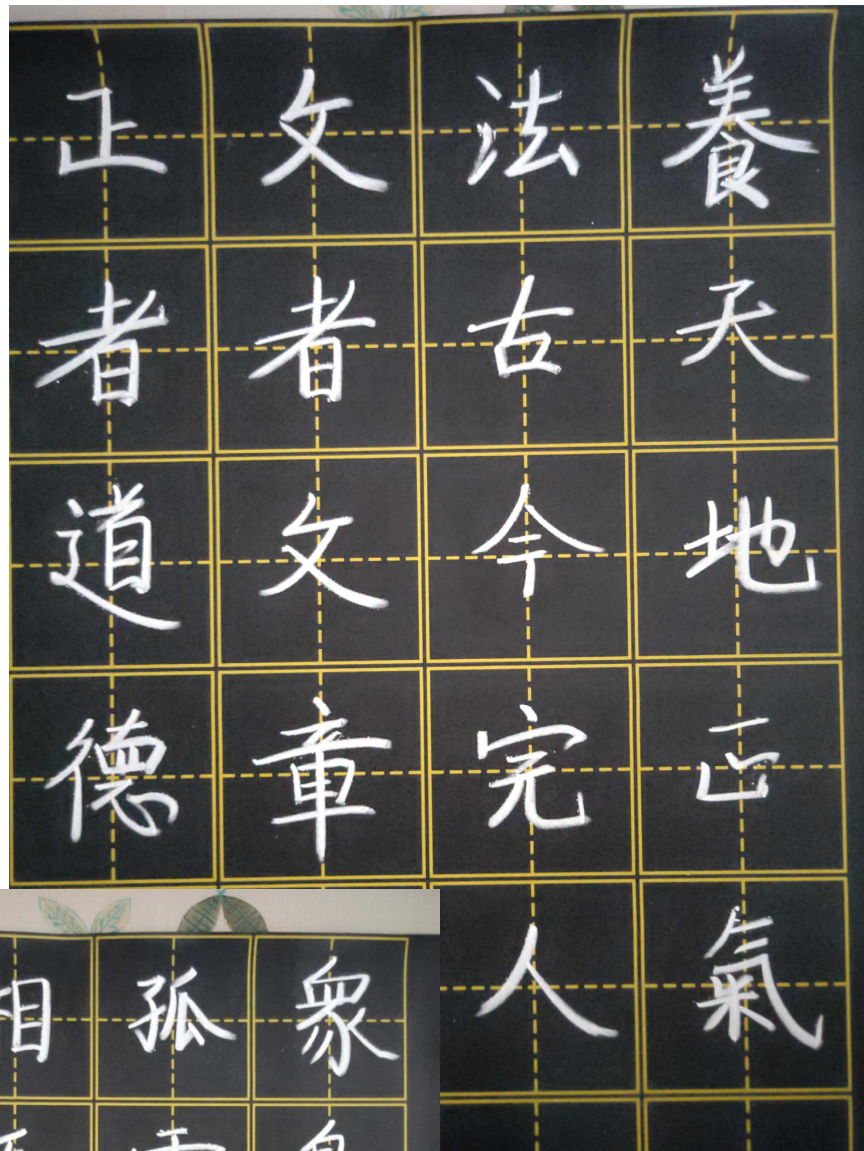 養天地正氣
法古今完人
文者文章
正者道德
眾
孤
相